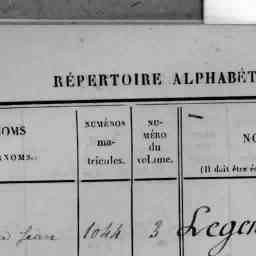 RÉPERTOIRE ALPHABÉT
NOMS
RÉNOMS.
NUMÉROS
ma-
tricules.
NU-
MÉRO
du
volume.
NO
(Il doit être é
Jean 1044 3 Legen